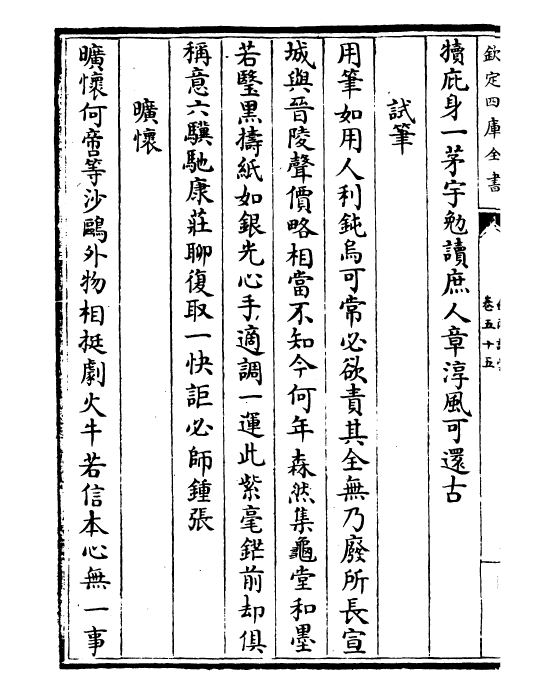 欽定四庫全書
卷五十五
犢庇身一茅宇勉讀庶人章淳風可還古
試筆
用筆如用人利鈍烏可常必欲責其全無乃廢所長宣
城與晉陵聲價略相當不知今何年森然集龜堂和墨
若瑿黑擣紙如銀光心手適調一運此紫毫鋩前却俱
稱意六驥馳康莊聊復取一快詎必師鍾張
曠懷
曠懷何啻等沙鷗外物相挺劇火牛若信本心無一事